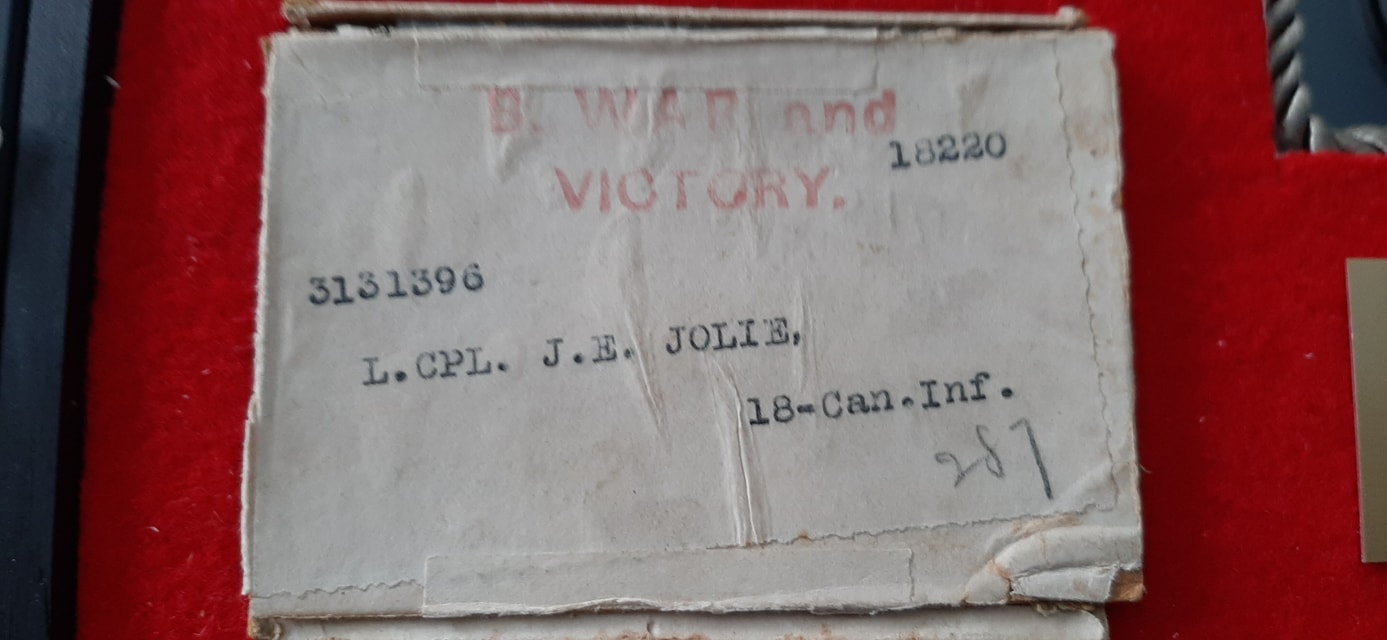 B. WAR and
18220
VICTORY.
3131396
L.CPL. J.E. JOLIE,
18-Can.Inf.
287